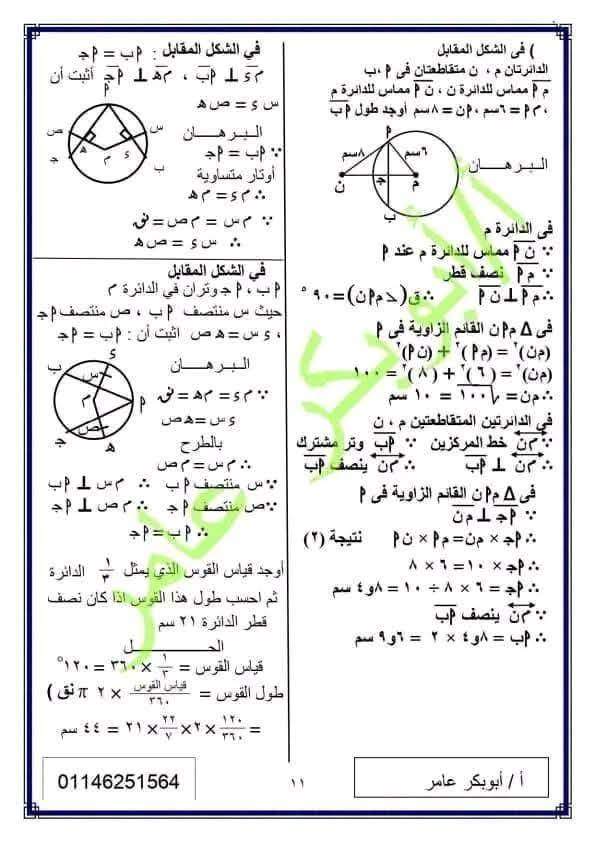 ) فى الشكل المقابل
الدائرتان م ، ن متقاطعتان فى ا ،ب
م ا مماس للدائرة ن ، ن ا مماس للدائرة م
، م ا = ٦سم ، ا ن = ٨سم أوجد طول ا ب
البرهـــــان
ا
٨سم
٦سم
ن
جـ
م
ب
فى الدائرة م
∵ ن ا مماس للدائرة م عند ا
∵ م ا نصف قطر
∴ م ا ⊥ ن ا ∴ ق( ∠ م ا ن ) = ٩٠ °
فى Δ م ا ن القائم الزاوية فى ا
(م ن)٢ = (م ا)٢ + (ن ا)٢
(م ن)٢ = ( ٦ )٢ + ( ٨ )٢ = ١٠٠
∴ م ن = √١٠٠ = ١٠ سم
فى الدائرتين المتقاطعتين م ، ن
∵ م ن خط المركزين ∵ ا ب وتر مشترك
∴ م ن ⊥ ا ب ∴ م ن ينصف ا ب
فى Δ م ا ن القائم الزاوية فى ا
∵ ا جـ ⊥ م ن
∴ ا جـ × م ن = م ا × ن ا نتيجة (٢)
∴ ا جـ × ١٠ = ٦ × ٨
∴ ا جـ = ٦ × ٨ ÷ ١٠ = ٤و٨ سم
∵ م ن ينصف ا ب
∴ ا ب = ٨و٤ × ٢ = ٦و٩ سم
فى الشكل المقابل : ا ب = ا جـ
م ء ⊥ ا ب ، م هـ ⊥ ا جـ أثبت أن
س ء = ص هـ
ا
ص
س
هـ
ء
م
جـ
ب
البـرهـــــان
∵ ا ب = ا جـ
أوتار متساوية
∴ م ء = م هـ
∵ م س = م ص = نق
∴ س ء = ص هـ
فى الشكل المقابل
ا ب ، ا جـ وتران في الدائرة م
حيث س منتصف ا ب ، ص منتصف ا جـ
، ء س = هـ ص اثبت أن : ا ب = ا جـ
ء
ب
س
م
ا
ص
جـ
هـ
البـرهـــــان
∵ م ء = م هـ = نق
ء س = هـ ص
بالطرح
∴ م س = م ص
∵ س منتصف ا ب ∴ م س ⊥ ا ب
∵ ص منتصف ا جـ ∴ م ص ⊥ ا جـ
∴ ا ب = ا جـ
أوجد قياس القوس الذي يمثل ١/٣ الدائرة
ثم احسب طول هذا القوس اذا كان نصف
قطر الدائرة ٢١ سم
الحـــــــــل
قياس القوس = ١/٣ × ٣٦٠ = ١٢٠°
طول القوس = قياس القوس/٣٦٠ × ٢ π نق )
= ١٢٠/٣٦٠ × ٢ × ٢٢/٧ × ٢١ = ٤٤ سم
أ/أبوبكر عامر
أ / أبوبكر عامر
١١
01146251564